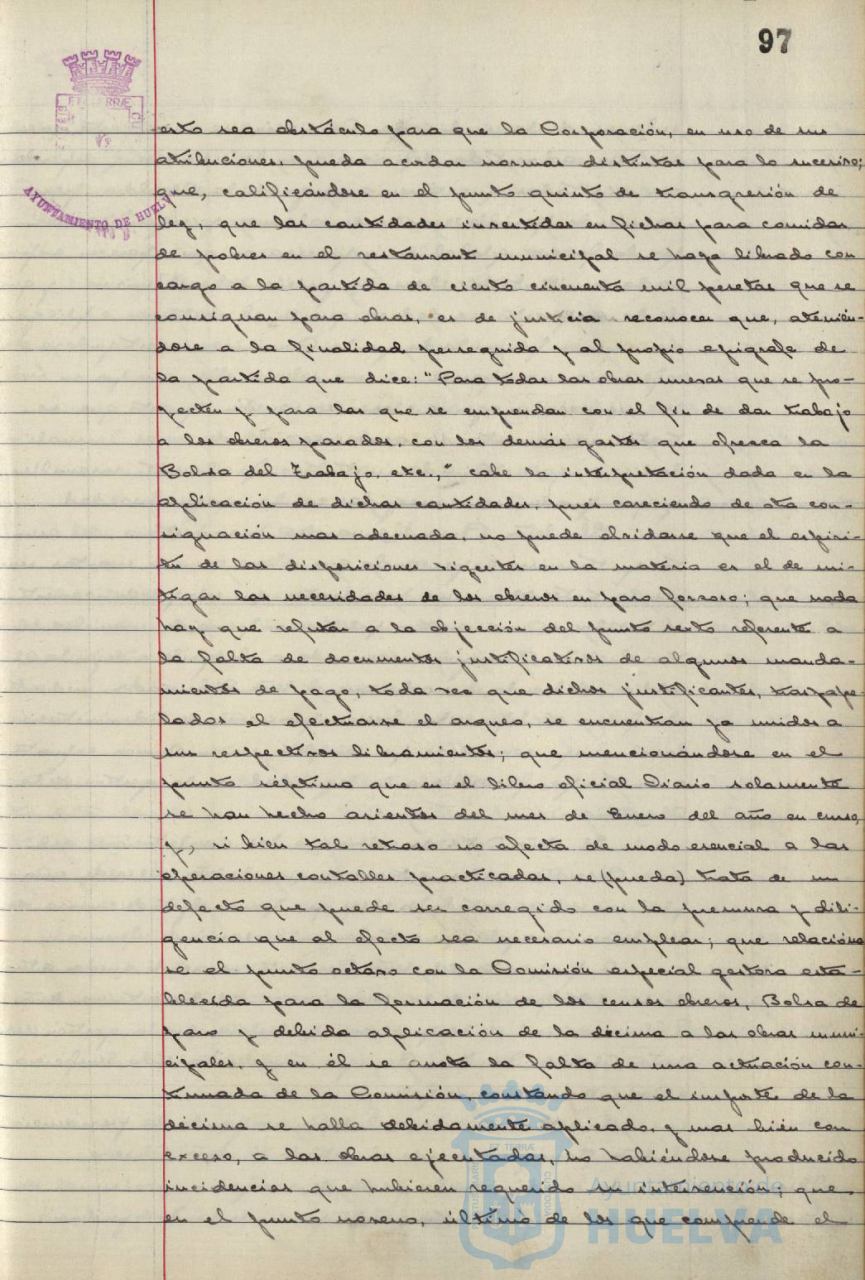 97
AYUNTAMIENTO DE HUELVA
esto sea obstáculo para que la Corporación, en uso de sus
atribuciones, pueda acordar normas distintas para lo sucesivo;
que, calificándose en el punto quinto de transgresión de
ley, que las cantidades invertidas en fichas para comidas
de pobres en el restaurant municipal se haya librado con
cargo a la partida de ciento cincuenta mil pesetas que se
consignan para obras, es de justicia reconocer que, atenién-
dose a la finalidad perseguida y al propio epígrafe de
la partida que dice: "Para todas las obras nuevas que se pro-
yecten y para las que se emprendan con el fin de dar trabajo
a los obreros parados, con los demás gastos que ofrezca la
Bolsa del Trabajo, etc.," cabe la interpretación dada en la
aplicación de dichas cantidades, pues careciendo de otra con-
signación mas adecuada, no puede olvidarse que el espíri-
tu de las disposiciones vigentes en la materia es el de mi-
tigar las necesidades de los obreros en paro forzoso; que nada
hay que refutar a la objección del punto sexto referente a
la falta de documentos justificativos de algunos manda-
mientos de pago, toda vez que dichos justificantes, traspape-
lados al efectuarse el arqueo, se encuentran ya unidos a
sus respectivos libramientos; que mencionándose en el
punto séptimo que en el libro oficial Diario solamente
se han hecho asientos del mes de Enero del año en curso,
y, si bien tal retraso no afecta de modo esencial a las
operaciones contables practicadas, se (pueda) trata de un
defecto que puede ser corregido con la premura y dili-
gencia que al efecto sea necesario emplear; que relaciona
se el punto octavo con la Comisión especial gestora esta-
blecida para la formación de los censos obreros, Bolsa de
paro y debida aplicación de la décima a las obras muni-
cipales, y en él se anota la falta de una actuación con-
tinuada de la Comisión, constando que el importe de la
décima se halla debidamente aplicado, y mas bién con
exceso, a las obras ejecutadas, no habiéndose producido
incidencias que hubieren requerido su intervención; que
en el punto noveno, último de los que comprende el
Ayuntamiento de
HUELVA